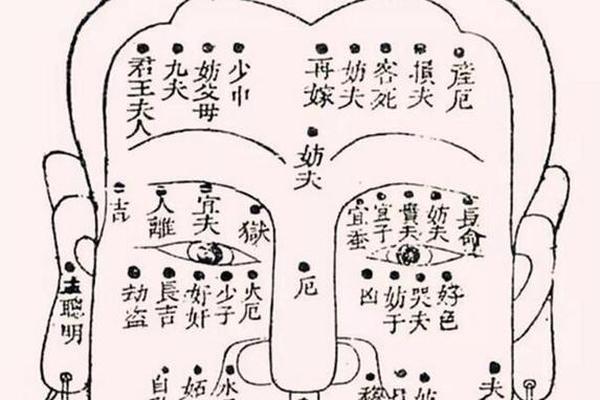 君王夫人
九夫
妨父母
少巾
再嫁
妨夫
客死
損夫
産厄
妨夫
吉
人離
宜夫
獄
宜蚕
宜子
貴夫
妨夫
長命
主聰明
劫盜
長吉
奸奸
少子
火厄
厄
凶
妨子
哭夫
好色
自
妬
水
夫